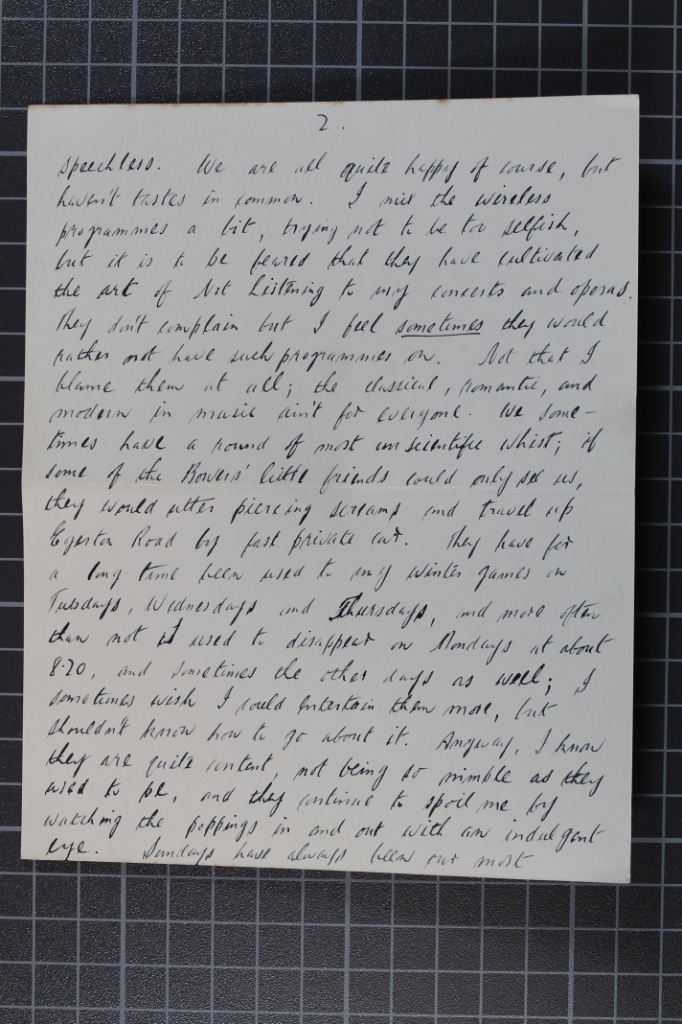 2.
speechless. We are all quite happy of course, but
haven't tastes in common. I mix the wireless
programmes a bit, trying not to be too selfish,
but it is to be feared that they have cultivated
the art of Not Listening to my concerts and operas.
They don't complain but I feel sometimes they would
rather not have such programmes on. Not that I
blame them at all; the classical, romantic, and
modern in music ain't for everyone. We some-
times have a round of most unscientific whist; if
some of the Bowers' little friends could only see us,
they would utter piercing screams and travel up
Egerton Road by fast private car. They have for
a long time been used to my winter games on
Tuesdays, Wednesdays and Thursdays, and more often
than not I used to disappear on Mondays at about
8.20, and sometimes the other days as well; I
sometimes wish I could entertain them more, but
shouldn't know how to go about it. Anyway, I know
they are quite content, not being so nimble as they
used to be, and they continue to spoil me by
watching the poppings in and out with an indulgent
eye. Sundays have always been our most